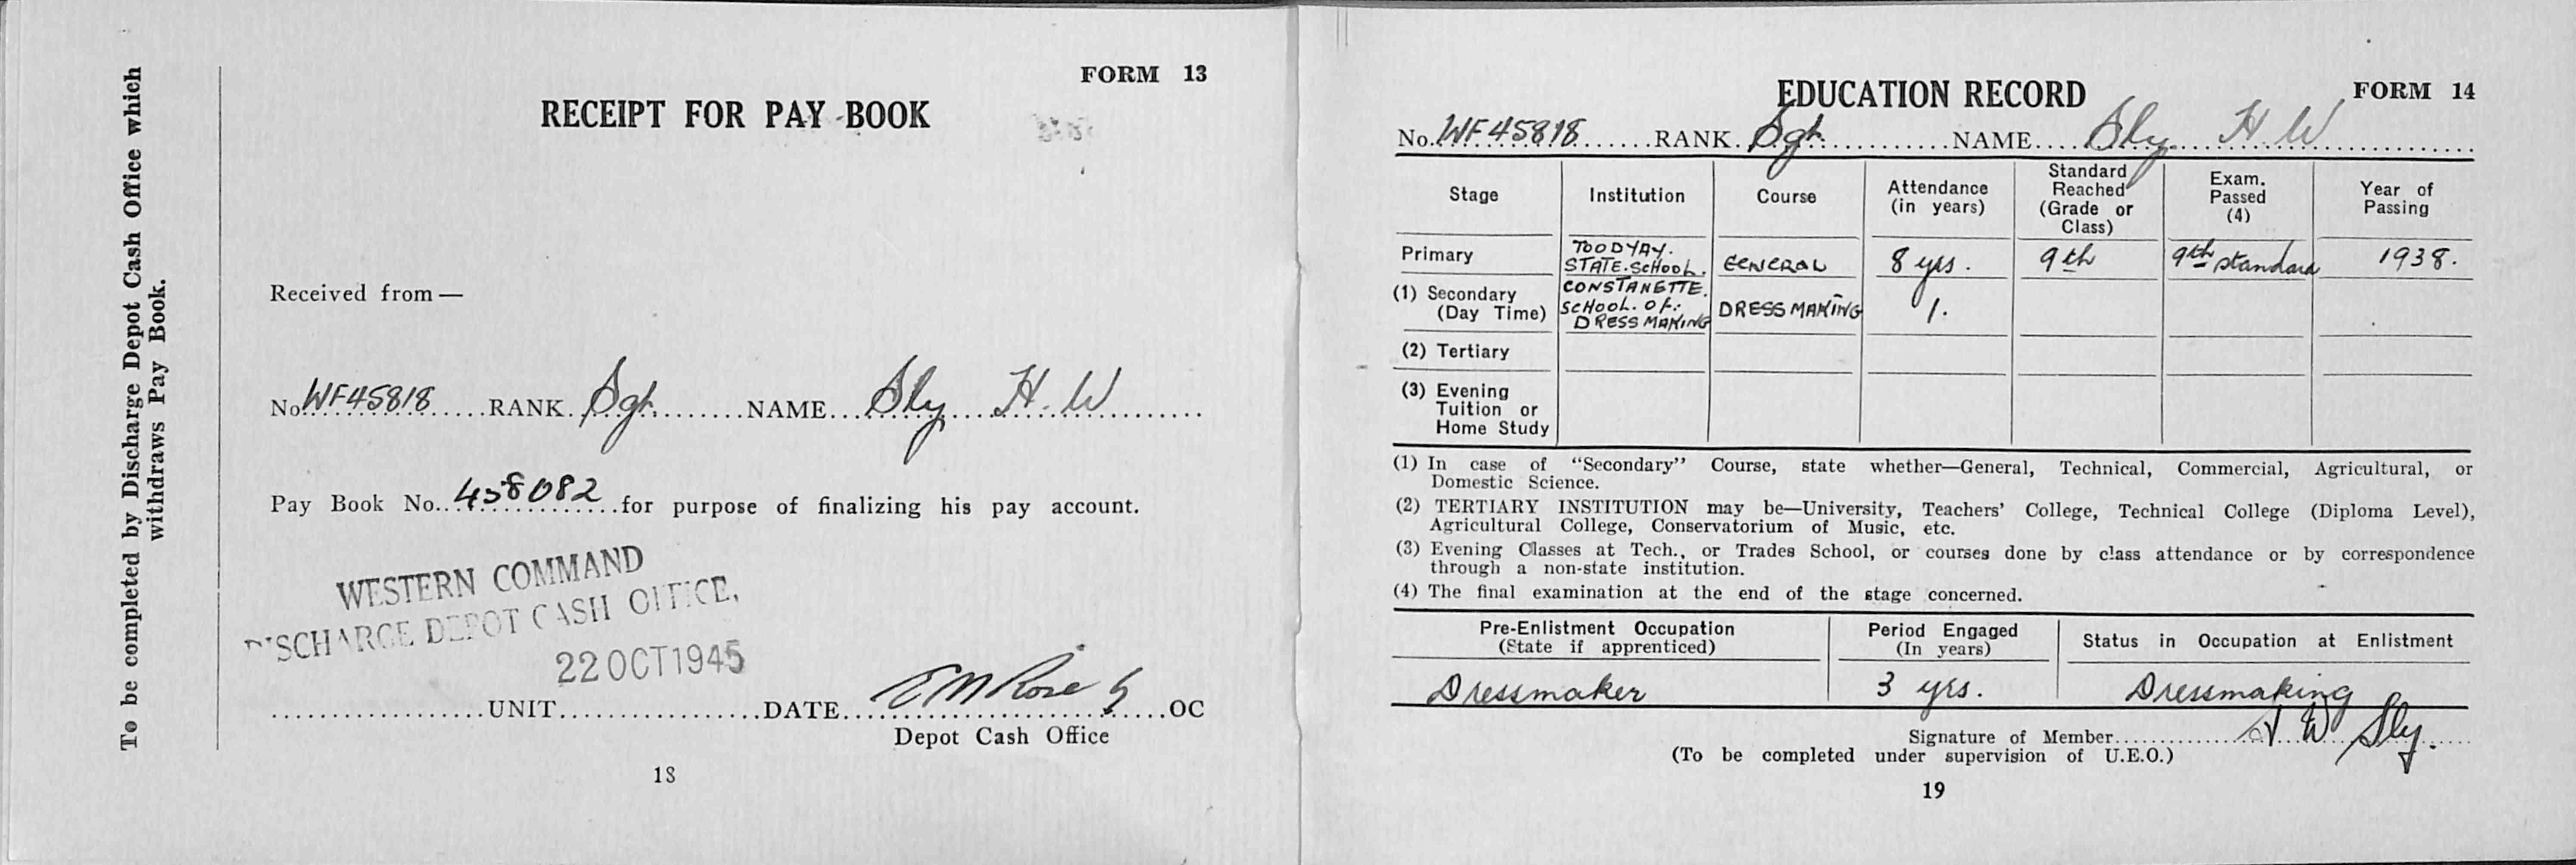 To be completed by Discharge Depot Cash Office which
withdraws Pay Book.
FORM 13
RECEIPT FOR PAY BOOK
Received from —
No. WF45818 RANK. Sgt. NAME Sly H. W
Pay Book No. 458082 for purpose of finalizing his pay account.
WESTERN COMMAND
DISCHARGE DEPOT CASH OFFICE,
22 OCT 1945
UNIT DATE E M Rose OC
Depot Cash Office
18
EDUCATION RECORD FORM 14
No. WF45818 RANK. Sgt. NAME Sly H W
Stage Institution Course Attendance (in years) Standard Reached (Grade or Class) Exam. Passed (4) Year of Passing
Primary TOODYAY. STATE. SCHOOL. GENERAL 8 yrs. 9th 9th standard 1938.
(1) Secondary (Day Time) CONSTANETTE. SCHOOL. OF: DRESSMAKING DRESSMAKING 1.
(2) Tertiary
(3) Evening
Tuition or
Home Study
(1) In case of “Secondary” Course, state whether—General, Technical, Commercial, Agricultural, or
Domestic Science.
(2) TERTIARY INSTITUTION may be—University, Teachers’ College, Technical College (Diploma Level),
Agricultural College, Conservatorium of Music, etc.
(3) Evening Classes at Tech., or Trades School, or courses done by class attendance or by correspondence
through a non-state institution.
(4) The final examination at the end of the stage concerned.
Pre-Enlistment Occupation (State if apprenticed) Period Engaged (In years) Status in Occupation at Enlistment
Dressmaker 3 yrs. Dressmaking
Signature of Member H W Sly.
(To be completed under supervision of U.E.O.)
19